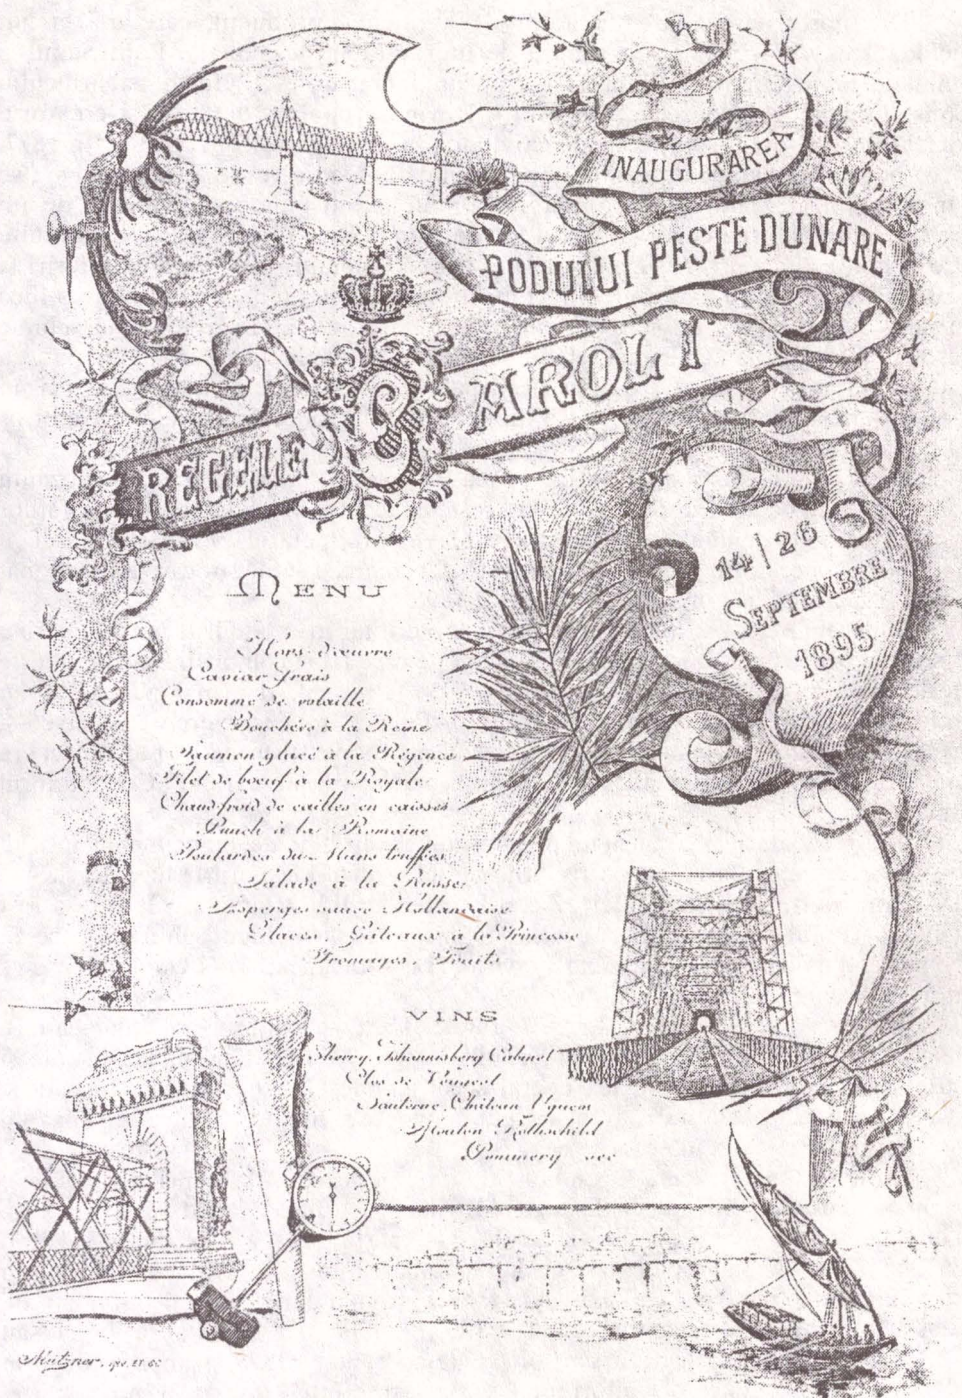 INAUGURAREA
PODULUI PESTE DUNARE
REGELE CAROL I
14 | 26
SEPTEMBRE
1895
MENU
Hors d'œuvre
Caviar frais
Consommé de volaille
Bouchées à la Reine
Saumon glacé à la Régence
Filet de boeuf à la Royale
Chaudfroid de cailles en caisses
Punch à la Romaine
Poulardes du Mans truffées
Salade à la Russe
Asperges sauce Hollandaise
Glaces, Gâteaux à la Princesse
Fromages, Fruits
VINS
Sherry, Johannisberg Cabinet
Clos de Vougeot
Sauterne, Château Yquem
Mouton Rothschild
Pommery sec